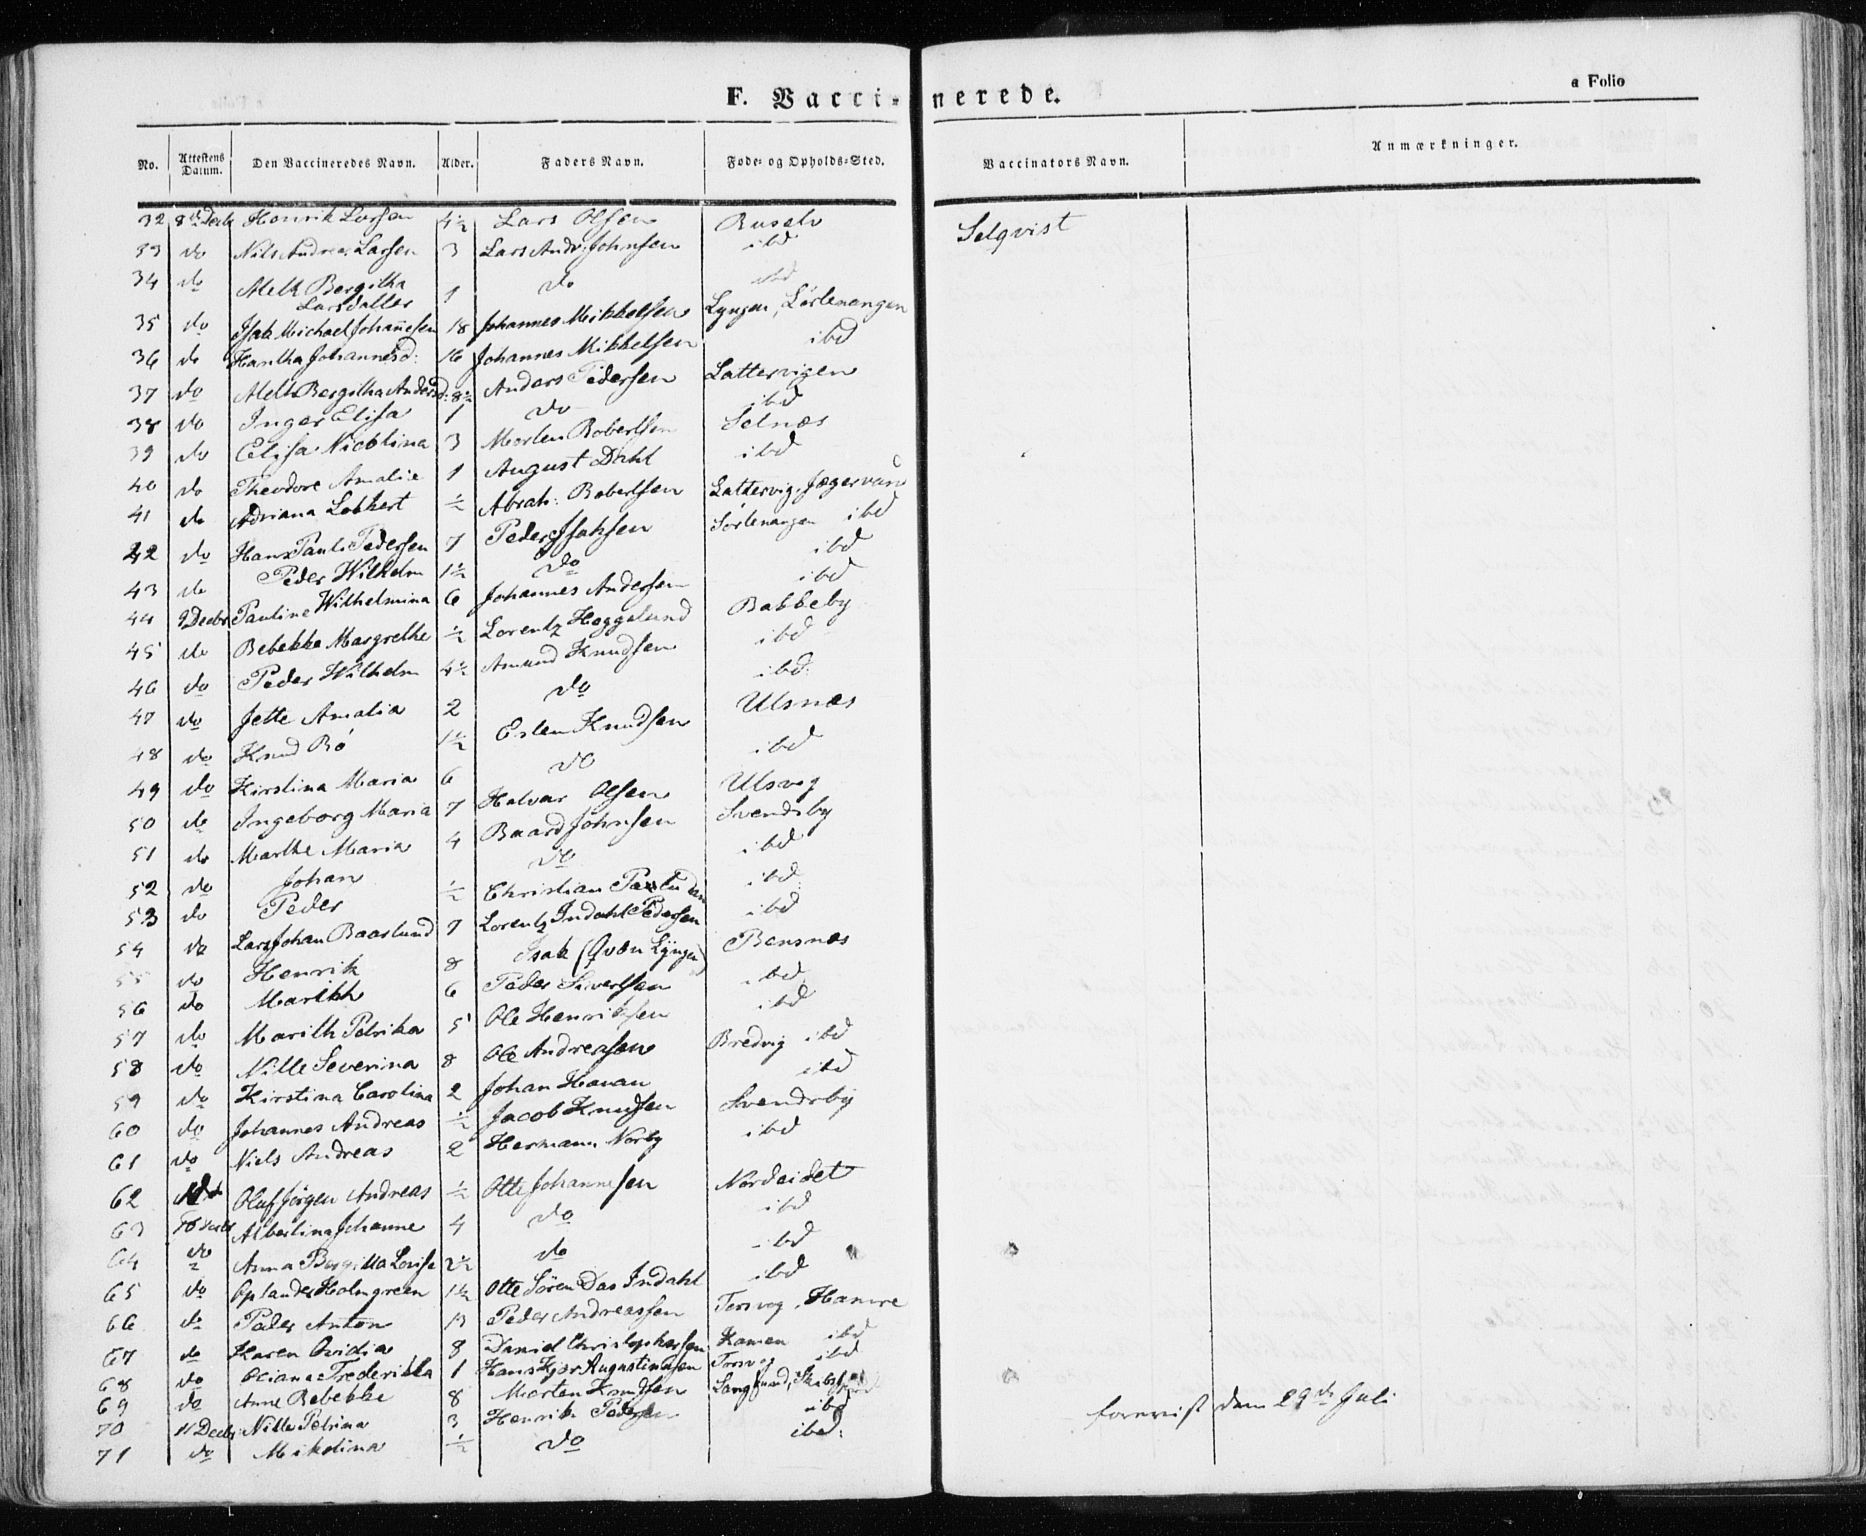 F. Vacci- nerede.
a Folio
No. | Attestens Datum. | Den Vaccineredes Navn. | Alder. | Faders Navn. | Føde- og Opholds-Sted. | Vaccinators Navn. | Anmærkninger.
32 8de Decbr Henrik Larsen 4½ Lars Olsen Selqvist
33 do Nils Andreas Larsen 3 Lars Andr. Johnsen ibd
34 do Bergitha Larsdatter 1 do ibd
35 do Isak Michael Johannesen 18 Johannes Mikkelsen Lyngen, Sørlenangen
36 do Johannesd: 16 Johannes Mikkelsen ibd
37 do Bergitha Andersd: 8½ Anders Pedersen Lattervigen
38 do Inger Elisa 1 do ibd
39 do Elisa Nicolina 3 Morten Robertsen Selnæs
40 do Theodore Amalie 1 August Dahl ibd
41 do Adriana Lokkert ½ Abrah: Robertsen Lattervig, Jægervand
42 do Hans Paul Pedersen 7 Peder Isaksen Sørlenangen ibd
43 do Peder Wilhelm 1½ do ibd
44 9 Decbr Pauline Wilhelmina 6 Johannes Andersen ibd
45 do Bebekke Margrethe ½ Lorentz Heggelund Bakkeby
46 do Peder Wilhelm 4½ Amund Knudsen ibd
47 do Jette Amalia 2 do ibd:
48 do Knud Bö 1½ Knudsen Ulsnæs
49 do Kirstina Maria 6 do ibd
50 do Ingeborg Maria 7 Halvar Olsen Ulsveg
51 do Marthe Maria 4 Baard Johnsen Svendsby
52 do Johan do ibd
53 do Peder ½ Christian ibd
54 do Lars Johan Baaslund 7 Lorentz Indahl Pedersen ibd
55 do Henrik 8 Isak (Qvæn Lyngen) Bensnæs
56 do Marith 6 Peder Sivertsen ibd
57 do Marith Petrika 5 Ole Henriksen ibd
58 do Nille Severina 8 Ole Andreasen Bredvig ibd
59 do Kirstina Carolina 2 Johan Havan ibd
60 do Johannes Andreas ½ Jacob Knudsen Svendsby
61 do Niels Andreas 2 Hermann Norby ibd
62 Oluf Jörgen Andreas ½ Otte Johannesen Nordeidet
63 10 Decbr Albertina Johanne 4 do ibd
64 do Anna Bergitta Lovise 2½ do ibd
65 do Holmgreen 1½ Otte Sören Das Indahl ibd
66 do Peder Anton 13 Peder Andreassen Torsveg, Hamre
67 do Karen Ovidia 8 Daniel Christophersen Kamen ibd
68 do Frederikka 1 Hans Kjær Augustinusen Torsveg ibd
69 do Anne Rebekke 8 Morten Knudsen
70 11 Decbr: Nille Petrina 3 Henrik Pedersen ibd
71 do Mikolina ½ do ibd:
forevist dem 29de Juli